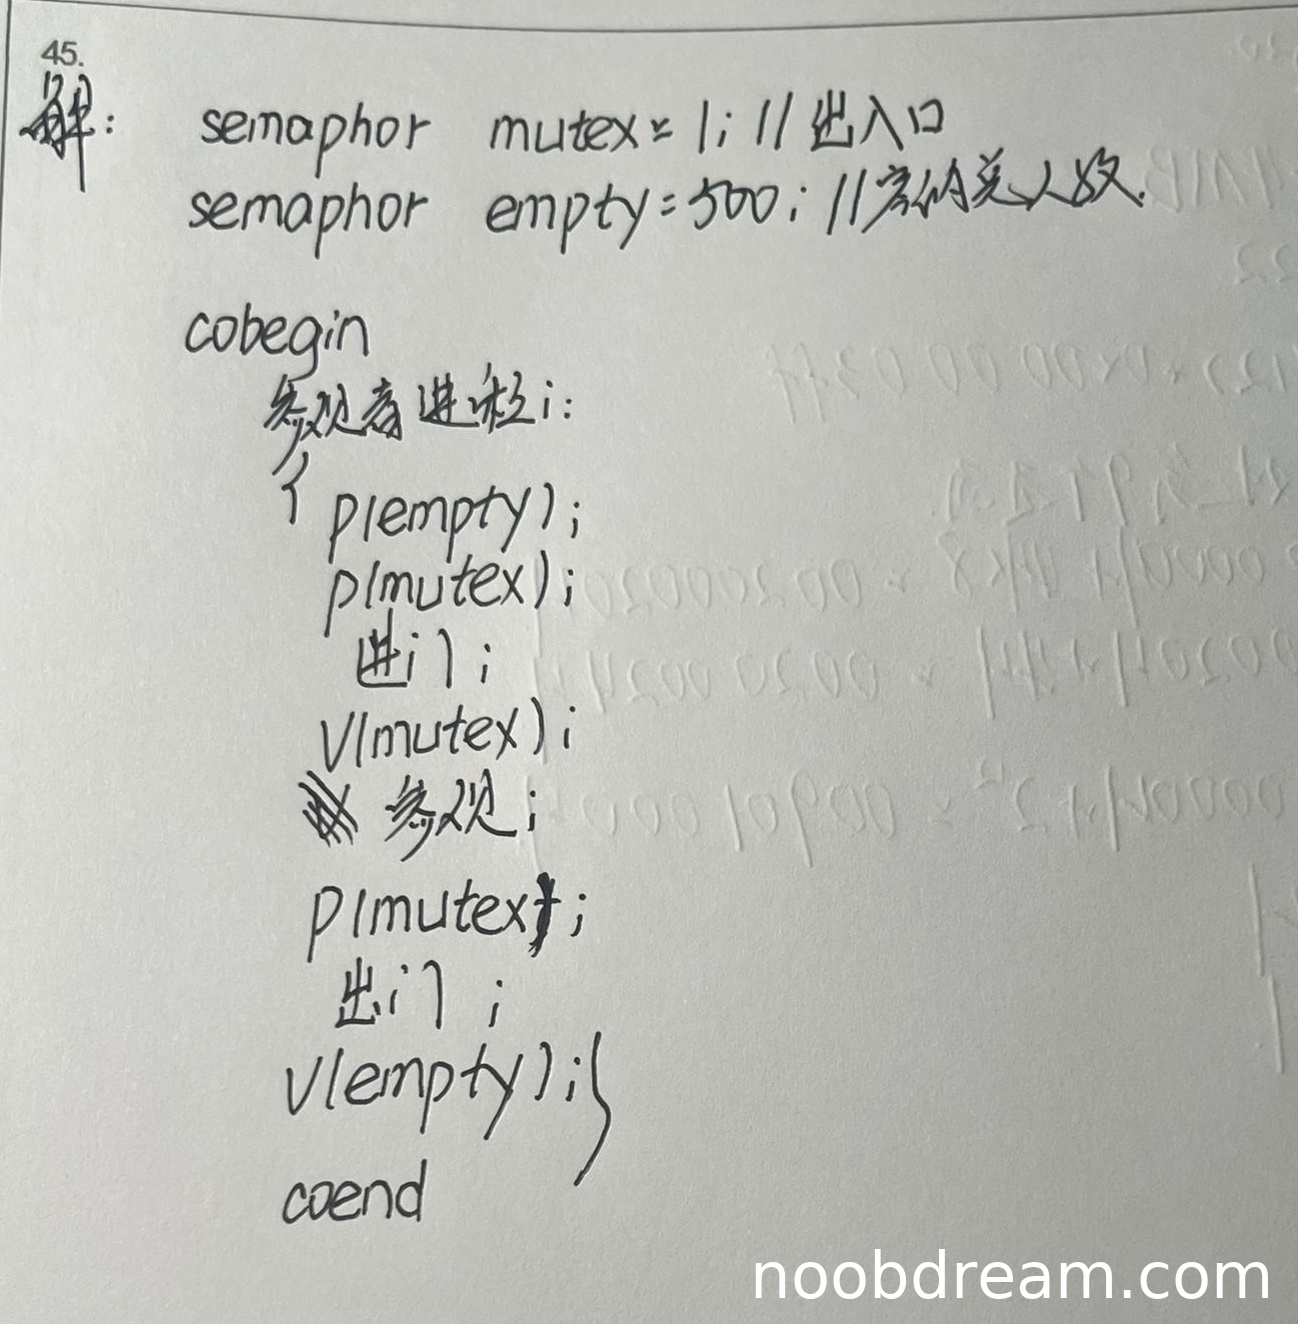 45.
解:
semaphor mutex = 1; // 出入口
semaphor empty = 500; // 容纳总人数.
cobegin
参观者进程i:
{
p(empty);
p(mutex);
进门;
V(mutex);
参观;
p(mutex);
出门;
V(empty);}
coend
noobdream.com